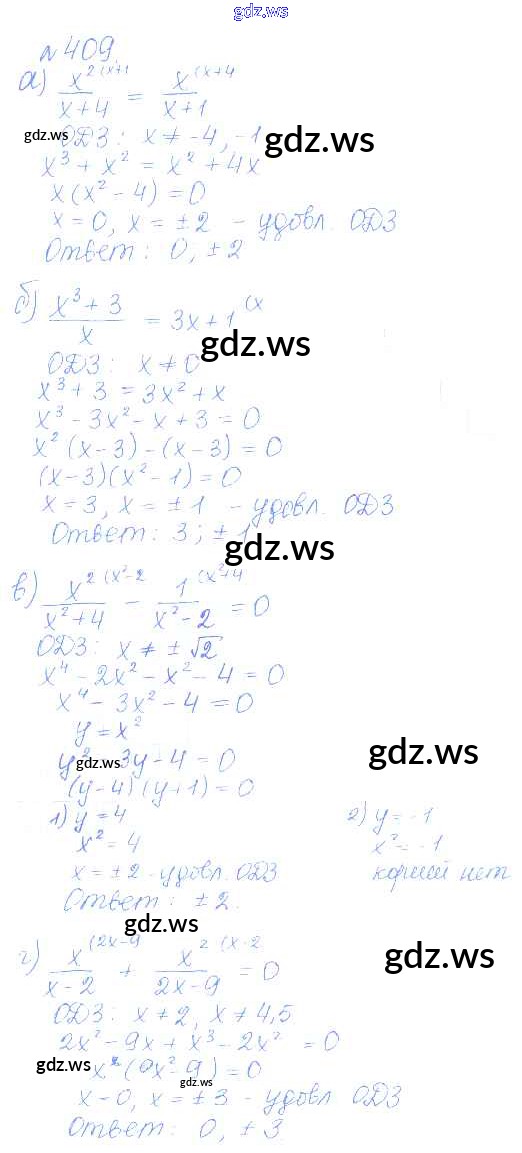 gdz.ws
№ 409
а) x^2 (x+1 / x+4 = x (x+4 / x+1
gdz.ws ОДЗ: x ≠ -4, -1 gdz.ws
x^3 + x^2 = x^2 + 4x
x(x^2 - 4) = 0
x = 0, x = ±2 - удовл. ОДЗ
Ответ: 0; ±2
б) x^3 + 3 / x = 3x + 1 (x
gdz.ws
ОДЗ: x ≠ 0
x^3 + 3 = 3x^2 + x
x^3 - 3x^2 - x + 3 = 0
x^2 (x-3) - (x-3) = 0
(x-3)(x^2 - 1) = 0
x = 3, x = ±1 - удовл. ОДЗ
Ответ: 3; ±1
gdz.ws
в) x^2 (x^2-2 / x^2+4 - 1 (x^2+4 / x^2-2 = 0
ОДЗ: x ≠ ±√2
x^4 - 2x^2 - x^2 - 4 = 0
x^4 - 3x^2 - 4 = 0
y = x^2
gdz.ws
y^2 - 3y - 4 = 0
gdz.ws
(y-4)(y+1) = 0
1) y = 4 2) y = -1
x^2 = 4 x^2 = -1
x = ±2 - удовл. ОДЗ корней нет
Ответ: ±2.
gdz.ws
г) x (2x-9 / x-2 + x^2 (x-2 / 2x-9 = 0
gdz.ws
ОДЗ: x ≠ 2, x ≠ 4,5
2x^2 - 9x + x^3 - 2x^2 = 0
gdz.ws
gdz.ws
x - 0, x = ±3 - удовл. ОДЗ
Ответ: 0, ±3